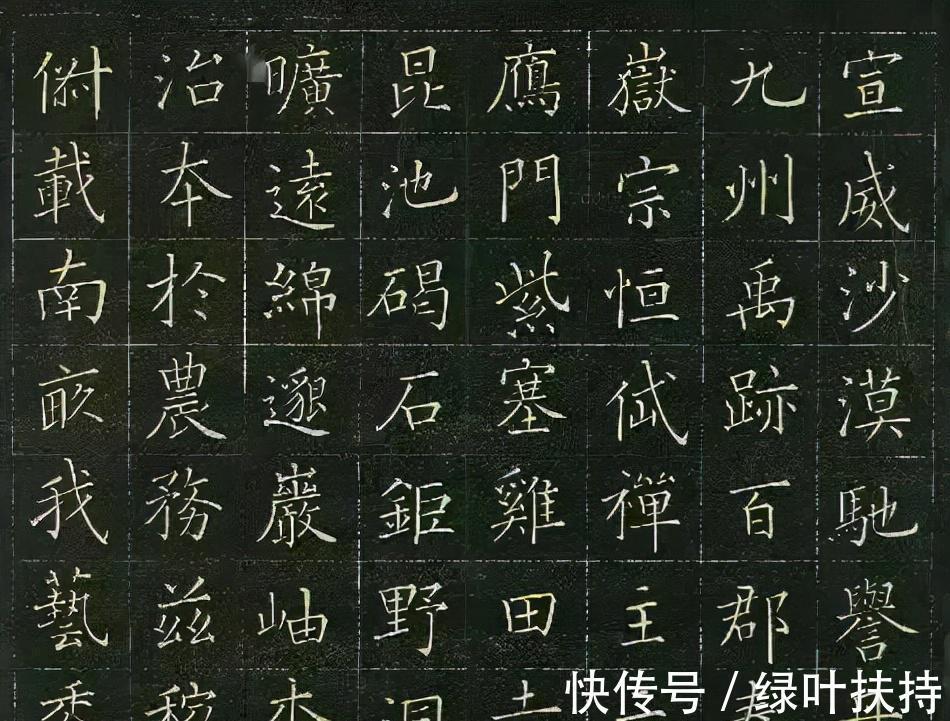 宣威沙漠馳譽
九州禹跡百郡
嶽宗恒岱禪主
鴈門紫塞雞田
昆池碣石鉅野
曠遠綿邈巖岫
治本於農務茲
俶載南畝我藝
快传号 / 绿叶扶持